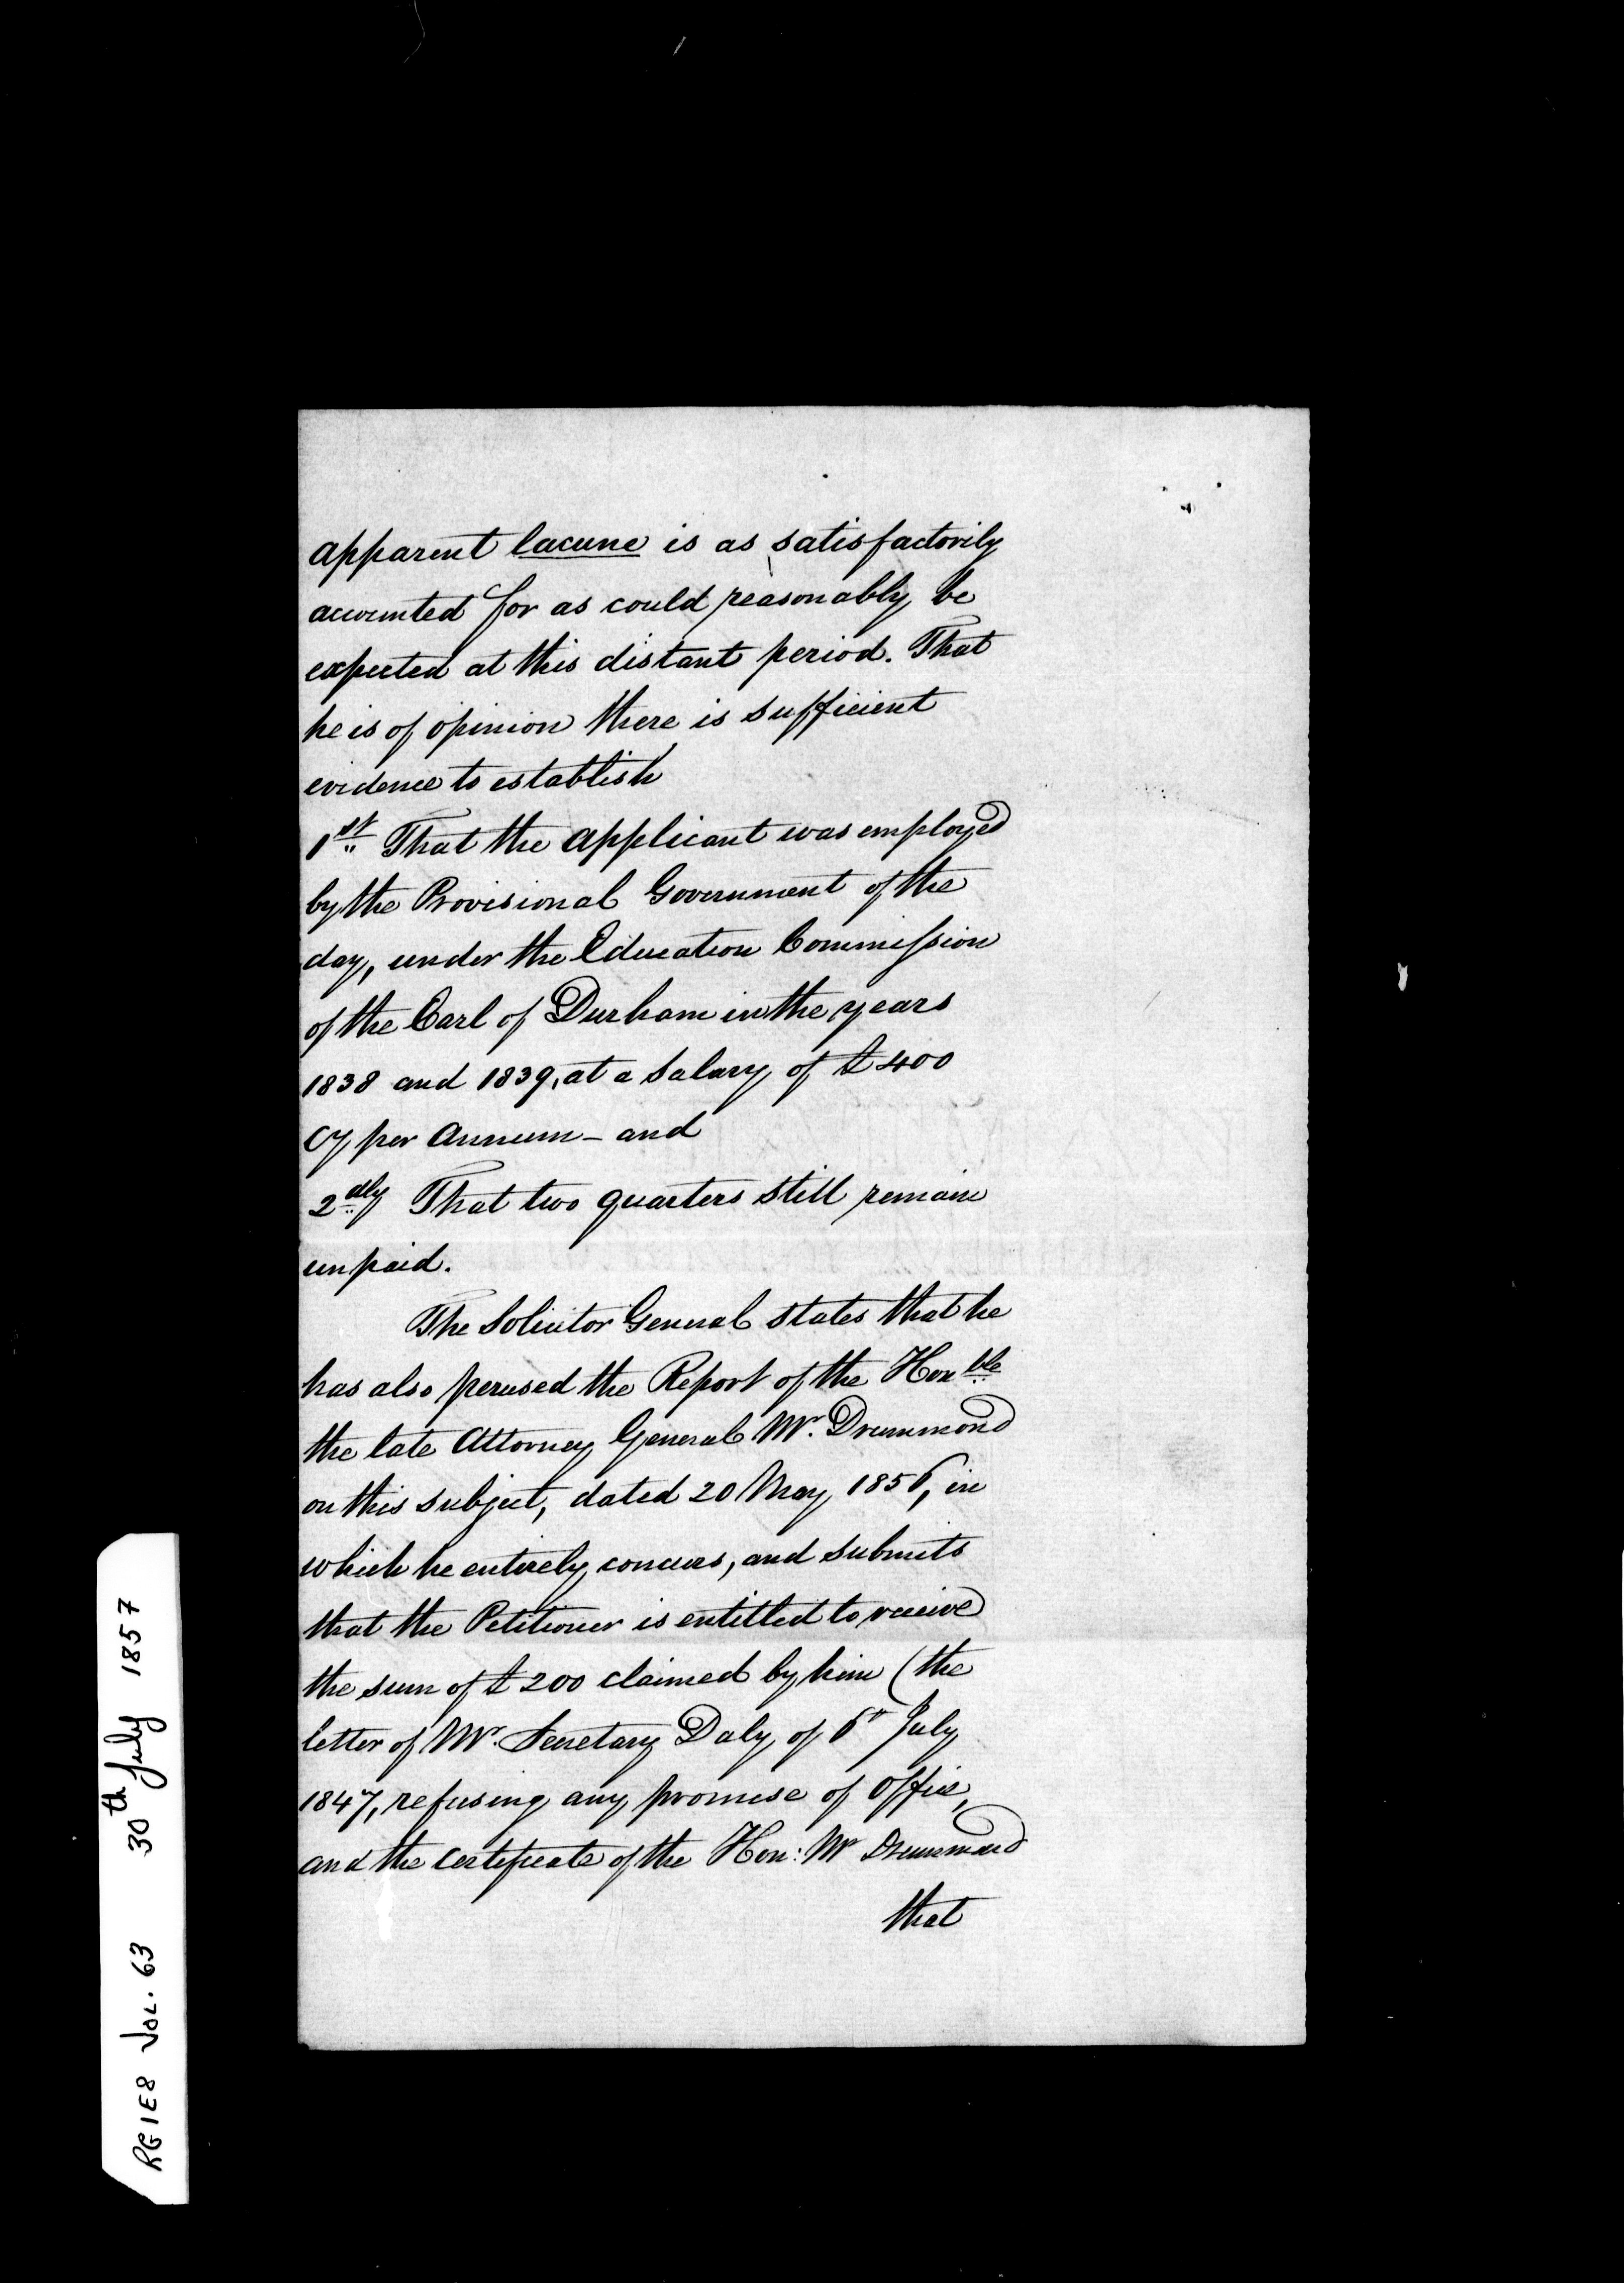 apparent lacune is as satisfactorily
accounted for as could reasonably be
expected at this distant period. That
he is of opinion there is sufficient
evidence to establish
1st That the applicant was employed
by the Provisional Government of the
day, under the Education Commission
of the Earl of Durham in the years
1838 and 1839, at a salary of £400
Cy per Annum - and
2dly That two quarters still remain
unpaid.
The Solicitor General states that he
has also perused the Report of the Honble
the late Attorney General Mr. Drummond
on this subject, dated 20 May 1856, in
which he entirely concurs, and submits
that the Petitioner is entitled to receive
the sum of £200 claimed by him (the
letter of Mr. Secretary Daly of 6th July
1847, refusing any promise of Office,
and the Certificate of the Hon: Mr Drummond
that
RG1E8 VOL. 63 30th July 1857